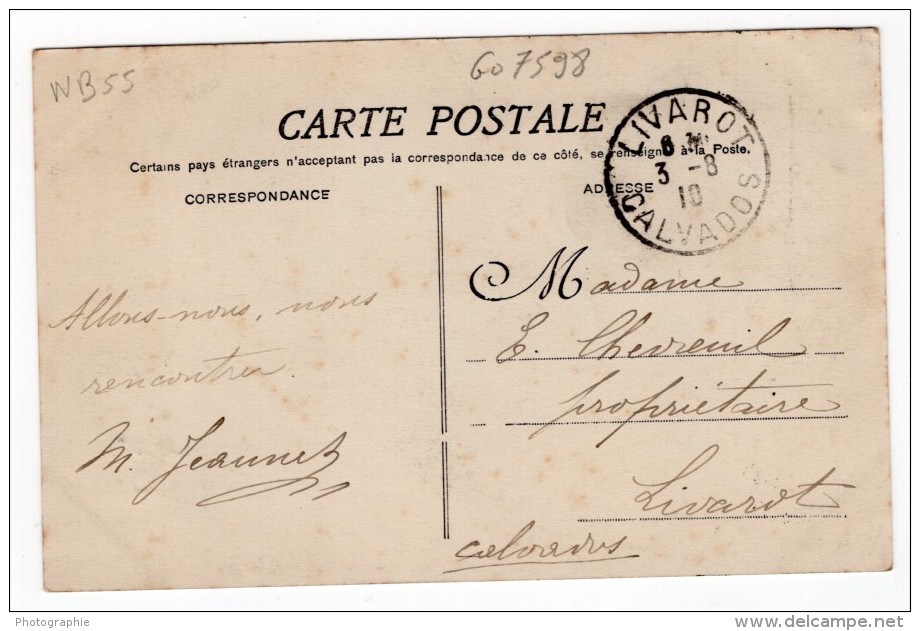 WB55
607598
CARTE POSTALE
Certains pays étrangers n'acceptant pas la correspondance de ce côté, se renseigner à la Poste.
CORRESPONDANCE
ADRESSE
LIVAROT
3 -8
10
CALVADOS
Allons-nous, nous
rencontrer.
M. Jeannet
Madame
E. Chevreuil
propriétaire
Livarot
calvados
Photographie
www.delcampe.net